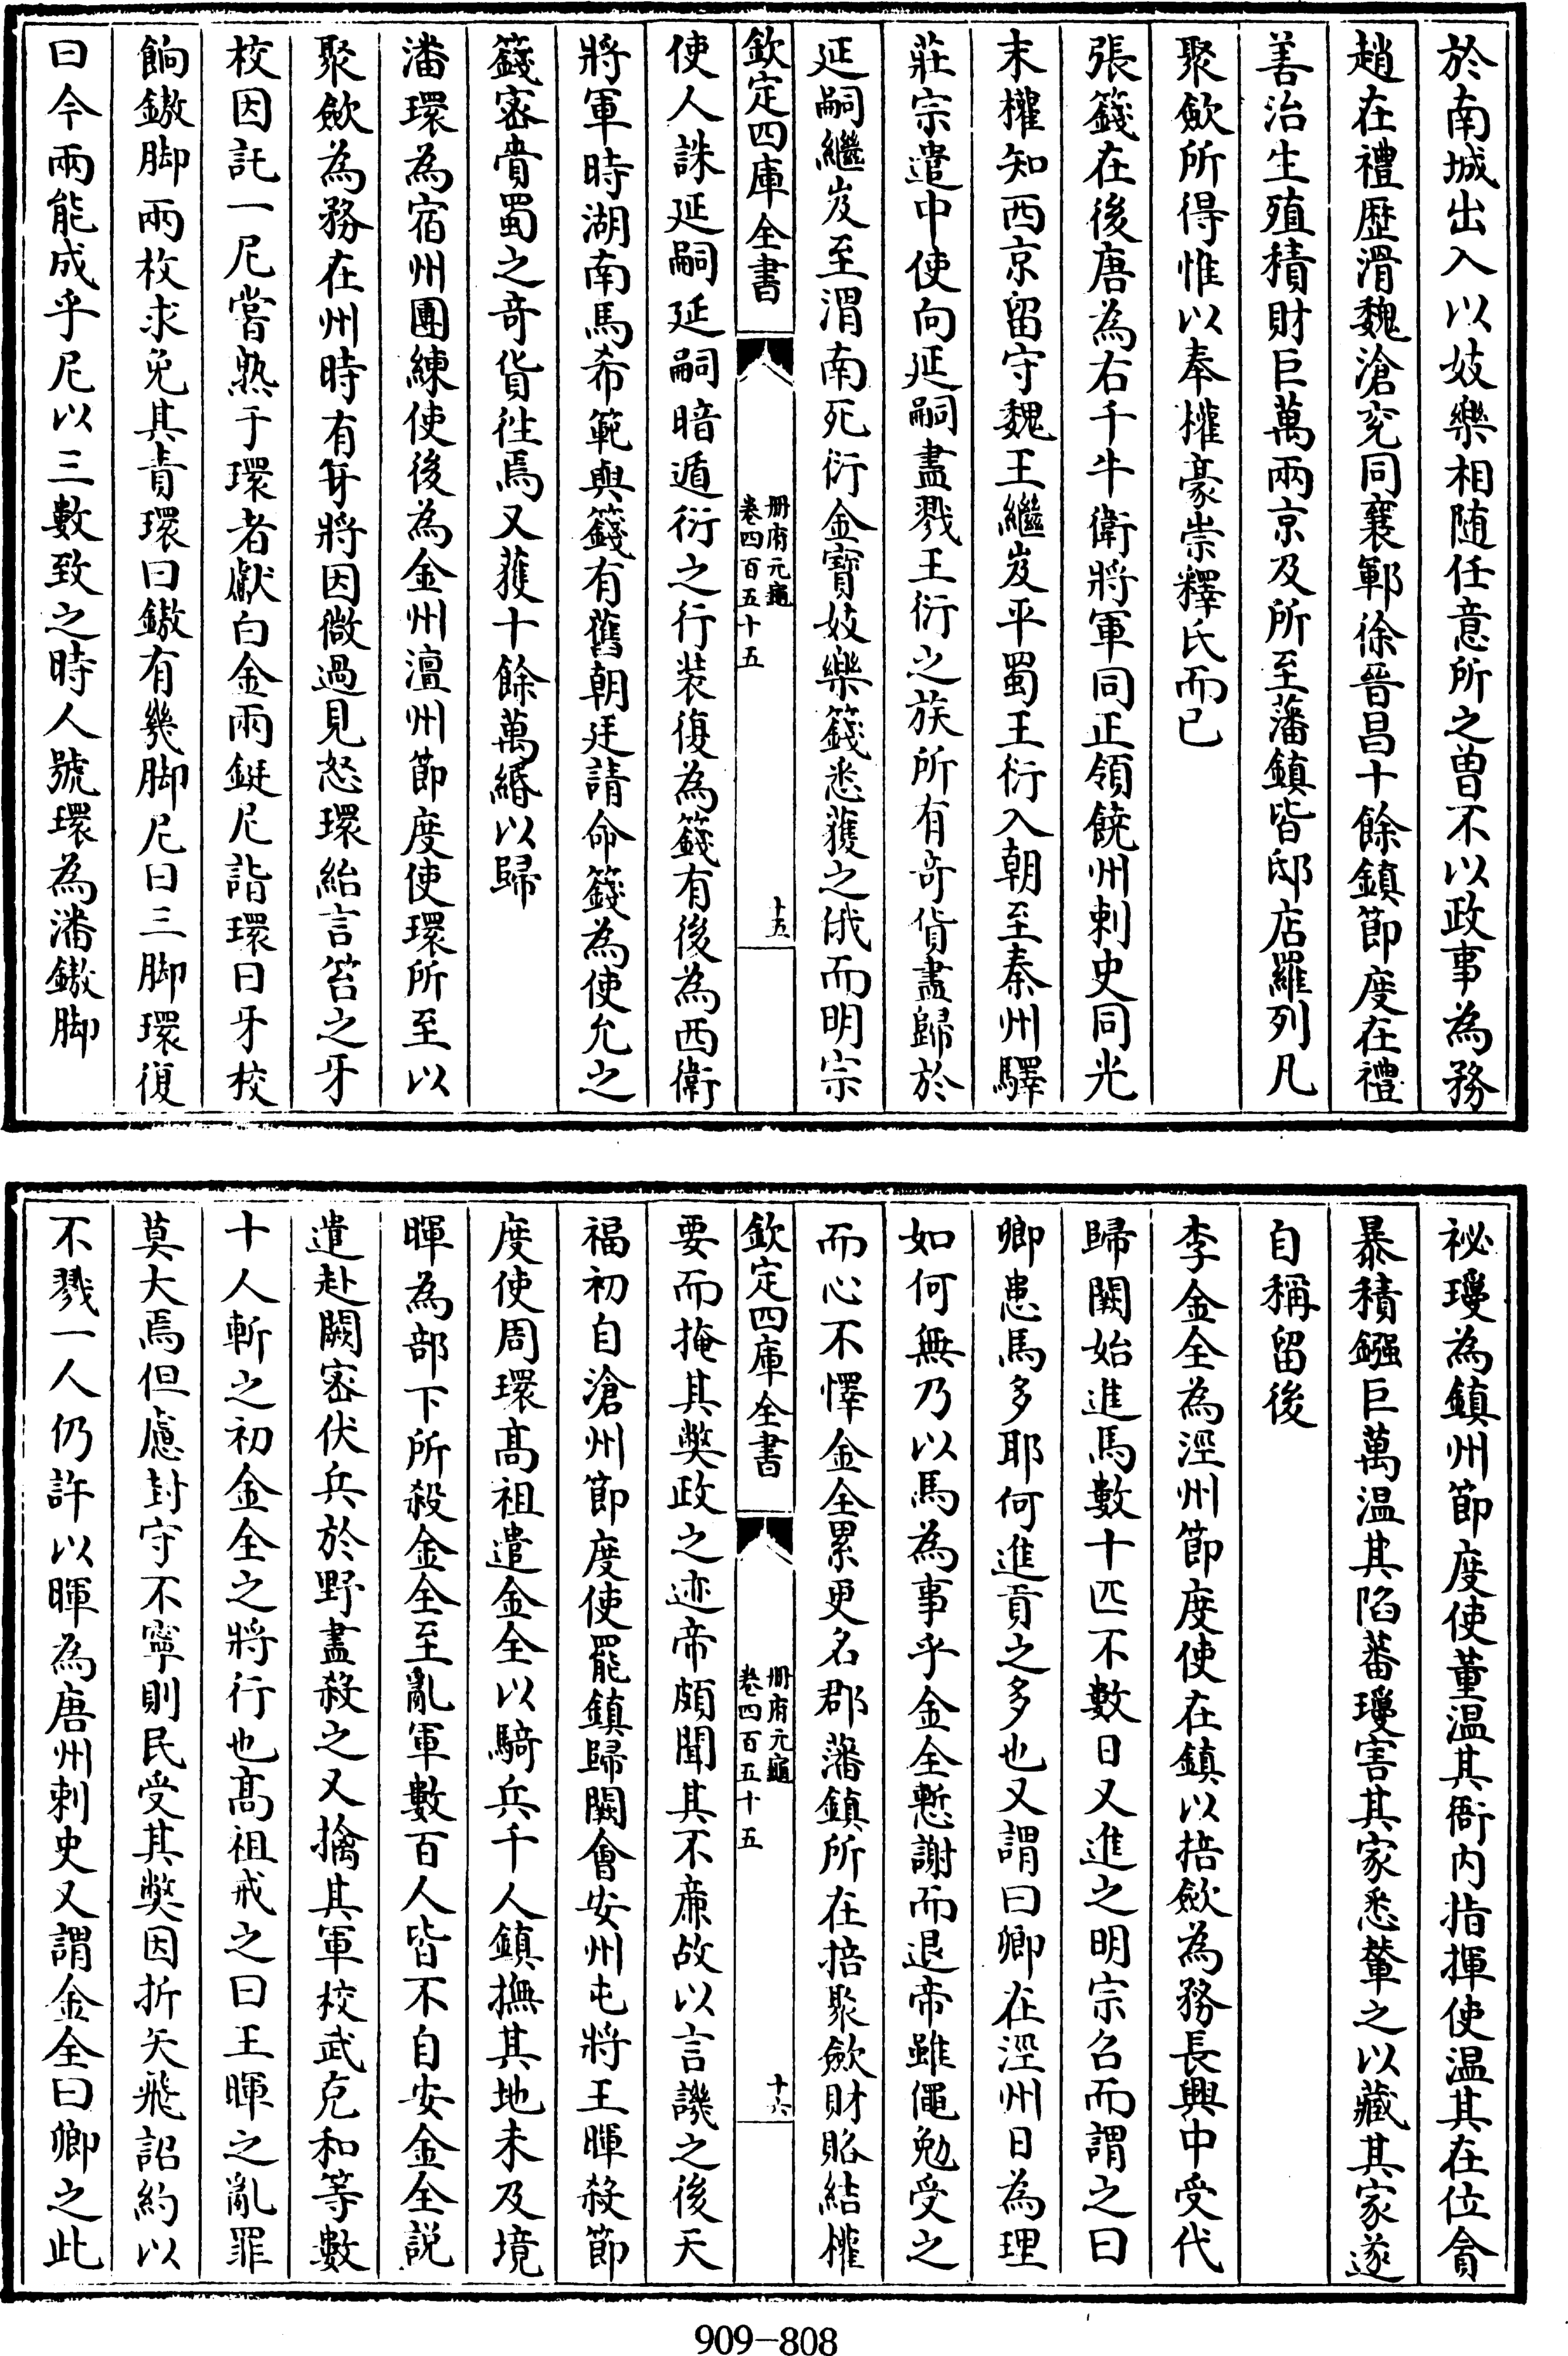 於南城出入以妓樂相随任意所之曽不以政事為務
趙在禮歴滑魏滄兖同襄鄆徐晉昌十餘鎮節度在禮
善治生殖積財巨萬兩京及所至藩鎮皆邸店羅列凡
聚歛所得惟以奉權豪崇釋氏而已
張籛在後唐為右千牛衛將軍同正領饒州刺史同光
末權知西京留守魏王繼岌平蜀王衍入朝至秦州驛
莊宗遣中使向延嗣盡戮王衍之族所有竒貨盡歸於
延嗣繼岌至渭南死衍金寳妓樂籛悉獲之俄而明宗
欽定四庫全書
册府元龜
卷四百五十五
十五
使人誅延嗣延嗣暗遁衍之行装復為籛有後為西衛
將軍時湖南馬希範與籛有舊朝廷請命籛為使允之
籛密賫蜀之竒貨徃焉又獲十餘萬緡以歸
潘環為宿州團練使後為金州澶州節度使環所至以
聚歛為務在州時有牙將因微過見怒環紿言笞之牙
校因託一尼嘗熟于環者獻白金兩鋌尼詣環曰牙校
餉鏊脚兩枚求免其責環曰鏊有幾脚尼曰三脚環復
曰今兩能成乎尼以三數致之時人號環為潘鏊脚
祕瓊為鎮州節度使董温其衙内指揮使温其在位貪
暴積鏹巨萬温其陷蕃瓊害其家悉輦之以藏其家遂
自稱留後
李金全為涇州節度使在鎮以掊歛為務長興中受代
歸闕始進馬數十匹不數日又進之明宗召而謂之曰
卿患馬多耶何進貢之多也又謂曰卿在涇州日為理
如何無乃以馬為事乎金全慙謝而退帝雖僶勉受之
而心不懌金全累更名郡藩鎮所在掊聚歛財賂結權
欽定四庫全書
册府元龜
卷四百五十五
十六
要而掩其弊政之迹帝頗聞其不亷故以言譏之後天
福初自滄州節度使罷鎮歸闕會安州屯將王暉殺節
度使周環髙祖遣金全以騎兵千人鎮撫其地未及境
暉為部下所殺金全至亂軍數百人皆不自安金全説
遣赴闕密伏兵於野盡殺之又擒其軍校武克和等數
十人斬之初金全之將行也髙祖戒之曰王暉之亂罪
莫大焉但慮封守不寧則民受其弊因折矢飛詔約以
不戮一人仍許以暉為唐州刺史又謂金全曰卿之此
909-808